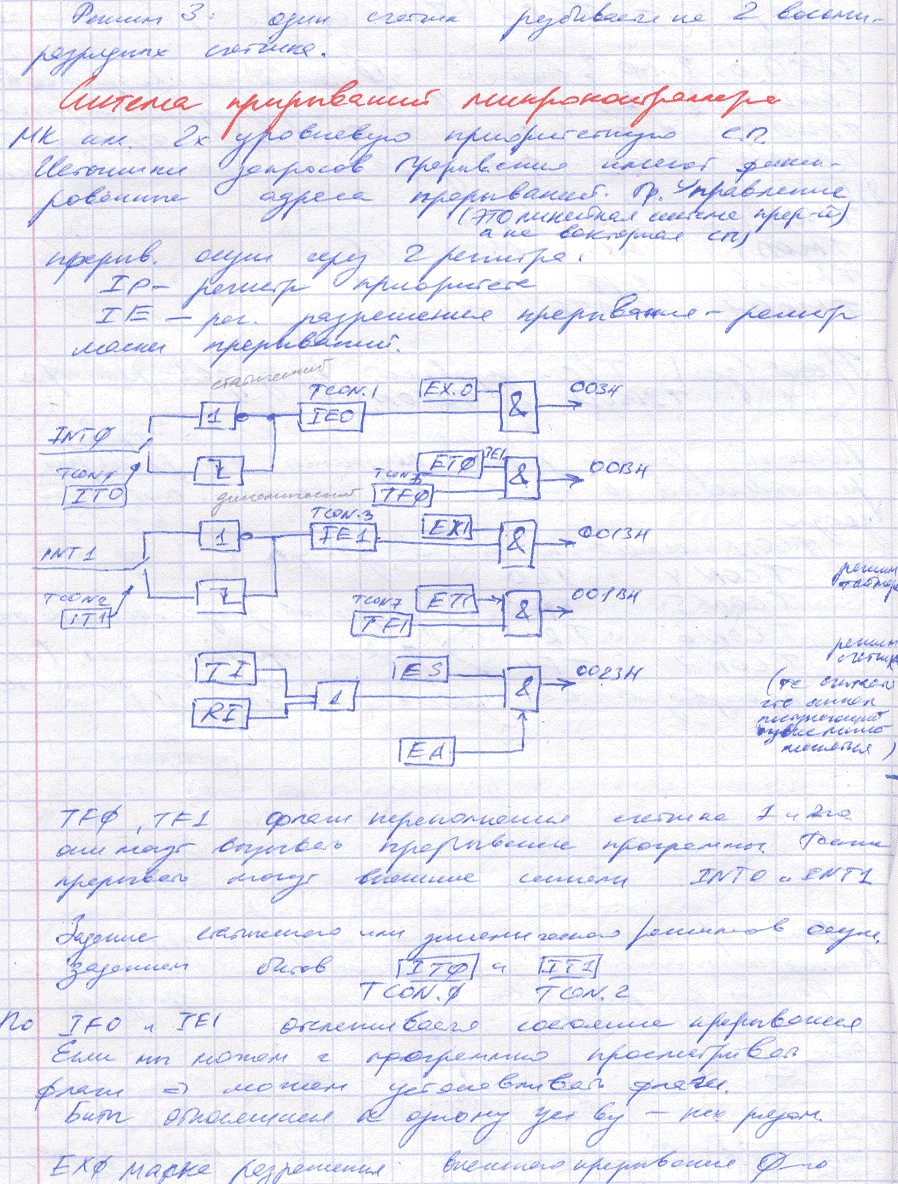 Режим 3: один счетчик разбивается на 2 восьми-
разрядных счетчика.
Система прирываний микроконтроллера
МК им. 2х уровневую приоритетную с.п.
Источники запросов прерывания имеют фикси-
рованные адреса прерываний. Пр. Управление
(это линейная система прер-й)
а не векторная сп)
прерыв. осущ через 2 регистра:
IP - регистр приоритета
IE - рег. разрешения прерывания - регистр
маски прерываний.
статический
TCON.1
EX.0
& 003H
1
IE0
INTØ
ETØ
IE1
& 00BH
TCON
IT0
TFØ
динамический
TCON.3
EX1
& 0013H
1
IE1
INT1
TCON2
IT1
TCON7
ET1
& 001BH
TF1
режим
таймера
режим
счетчик
TI
ES
& 0023H
RI
1
EA
TFØ, TF1 флаги переполнения счетчика 1 и 2го
они могут вызывать прерывание программы. Также
прерывать могут внешние сигналы INT0 и INT1
Задание статического или динамического режимов осущ.
Заданием битов ITØ и IT1
TCON.Ø TCON.2
По IE0 и IE1 отслеживается состояние прерывания
Если мы можем программно просматривать
флаги => можем устанавливать флаги.
Биты относящиеся к одному уст-ву - нах. рядом.
EXØ маска разрешения внешнего прерывания Ø-го